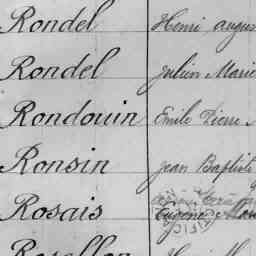 Rondel Henri augus
Rondel Julien Marie
Rondouin Emile Pierre
Ronsin Jean Baptiste
Rosais Eugène Mar